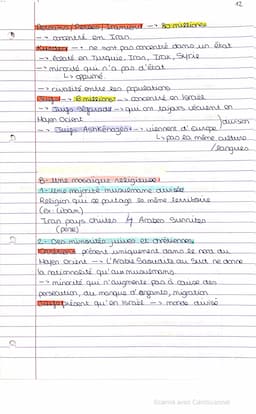 12
Persans / Perses / Iraniens --> 80 millions
--> concentré en Iran.
Kurdes --> ne sont pas concentré dans un État
--> éclaté en Turquie, Iran, Irak, Syrie
--> minorité qui n'a pas d'état
↳ opprimé.
--> rivalité entre les populations
Juifs --> 8 millions --> concentré en Israël
--> Juifs Séfarades --> qui ont toujours vécu en
Moyen Orient
division
--> Juifs Ashkénazes --> viennent d'europe
↳ pas la même culture
/langues
B- Une mosaïque religieuse :
1- Une majorité musulmane divisée
Religion qui se partage le même territoire
(ex: Liban)
Iran pays chiites ↯ Arabes Sunnites
(perse)
2- Des minorités juives et chrétiennes
présent uniquement dans le nord du
Moyen Orient --> L'Arabie Saoudite au Sud ne donne
la nationalité qu'aux musulmans.
--> minorité qui n'augmente pas à cause des
persécution, du manque d'enfants, migration
présent qu'en Israël --> monde divisé
Scanné avec CamScanner